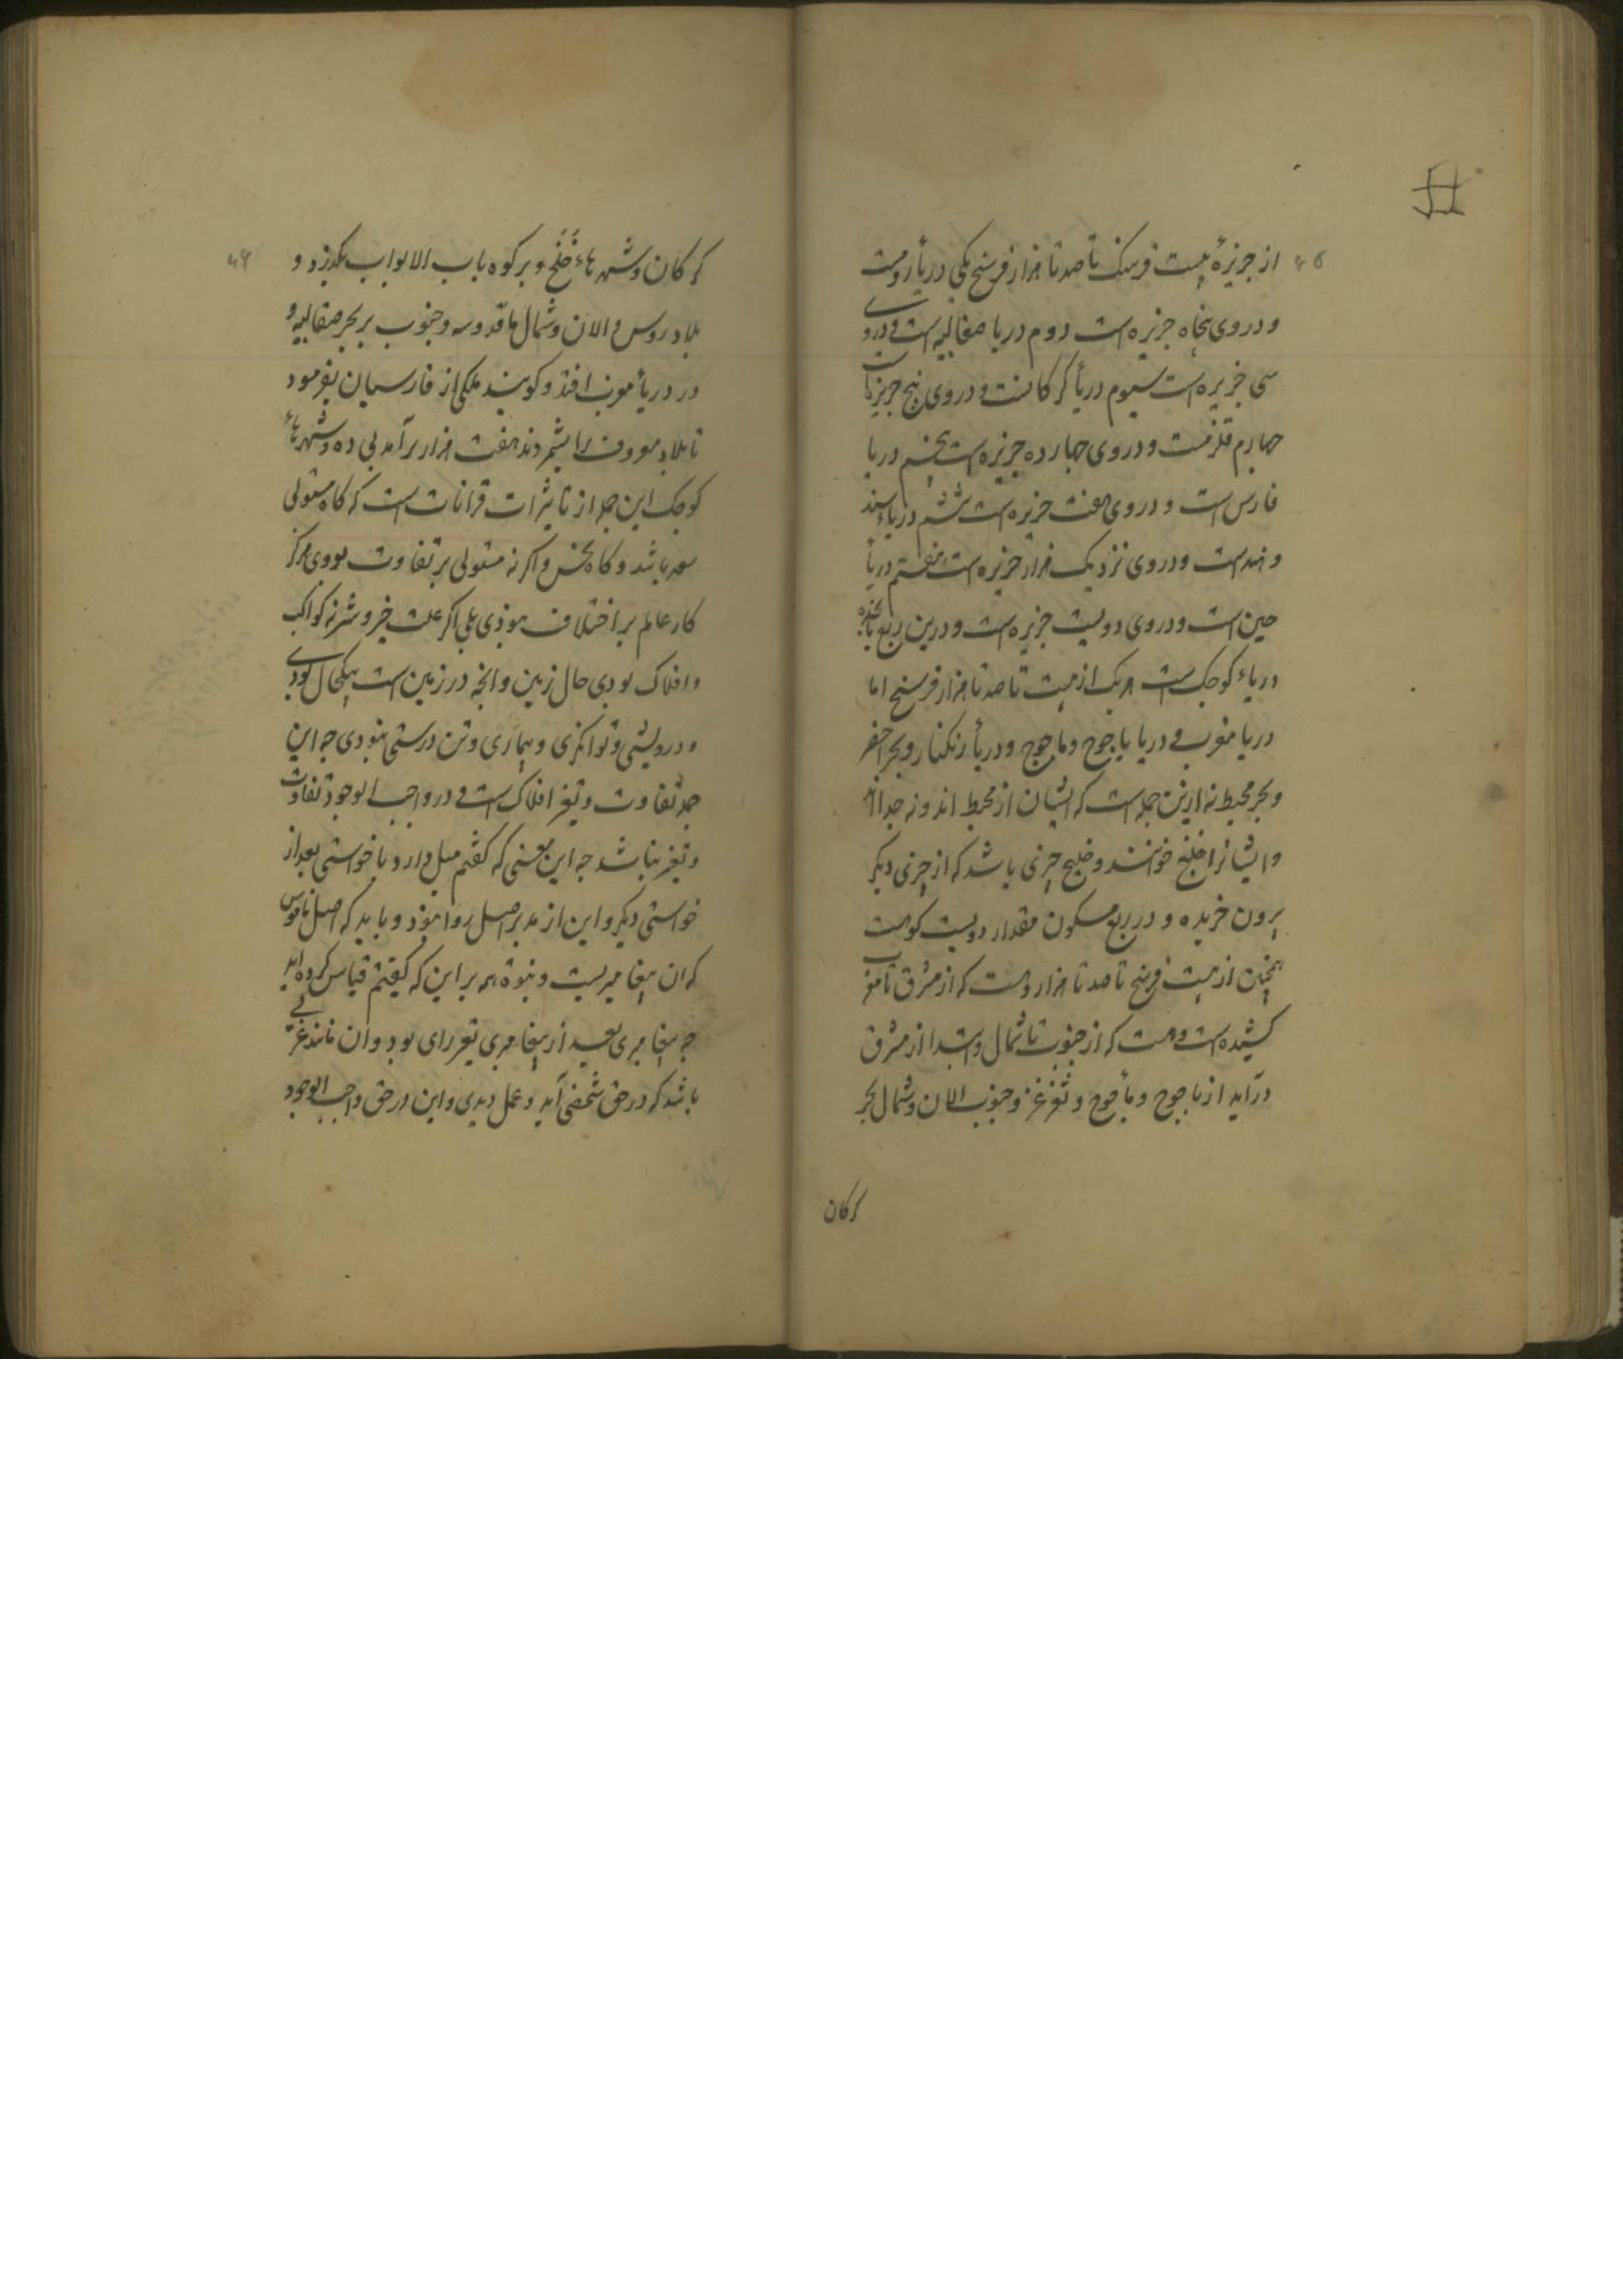 از جزیرهٔ بیست فرسنک تا صد تا هزار فرسنج یکی دریأ رومست
و در وی پنجاه جزیره است دوم دریا صقالیه است و در وی
سی جزیره است سیوم دریأ کرکانست و در وی پنج جزیزه است
چهارم قلزمست و در وی چهارده جزیره است پنجم دریا
فارس است و در وی هفت جزیره است ششم دریاء سند
و هند است و در وی نزدیک هزار جزیره است هفتم دریأ
چین است و در وی دویست جزیره است و درین ربع پانجده
دریاء کوچک است هر یک از بیست تا صد تا هزار فرسنج اما
دریا مغرب و دریا یاجوج و ماجوج و دریأ زنکبار و بحر اخضر
و بحر محیط نه ازین جمله است که ایشان از محیط اند و نه جدااند
و ایشانرا خلیج خوانند و خلیج چیزی باشد که از چیزی دیکر
بیرون خزیده و در ربع مسکون مقدار دویست کوهست
همچنین از بیست فرسنج تا صد تا هزار و هست که از مشرق تا مغرب
کشیده است و هست که از جنوب تا شمال و ابتدا از مشرق
درآید از یاجوج و مأجوج و تغزغز و جنوب الان و شمال بحر
کرکان
کرکان و شهرهاء خلخ و بر کوه باب الابواب بکذرد و
بلاد روس و الان و شمال ماقدوسه و جنوب بر بحر صقالیه و
در دریأ مغرب افتد و کویند ملکی از فارسیان بفرمود
تا بلاد معروف را بشمردند هفت هزار برآمد بی ده و شهرهاء
کوچک این جمله از تاثیرات قرانات است که کاه مستولی
سعد باشد و کاه نحس و اکر نه مستولی بر تفاوت بودی هرکز
کار عالم بر اختلاف نبودی بلی اکر علت خیر و شر نه کواکب
و افلاک بودی حال زمین و انچه در زمین است بیکحال بودی
و درویشی و توانکری و بیماری و تن درستی نبودی چه این
جمله تفاوت و تغیر افلاک است و در واجب الوجود تفاوت
و تغیر نباشد چه این معنی که کفتم میل دارد با خواستی بعد از
خواستی دیکر و این از مدبر اصل روا نبود و باید که اصل ناموس
که ان پیغامبریست و نبوة هم بر این که کفتم قیاس کرده اید
چه پیغامبری بعد از پیغامبری تغیر رای بود و ان مانند
باشد که در حق شخصی آید و عمل دیدی و این در حق واجب الوجود